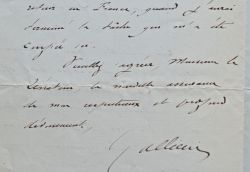 retour en France, quand j'aurai
terminé la tâche qui m'a été
Veuillez agréer, Monsieur le
la nouvelle assurance
de mon respectueux et profond
dévouement,